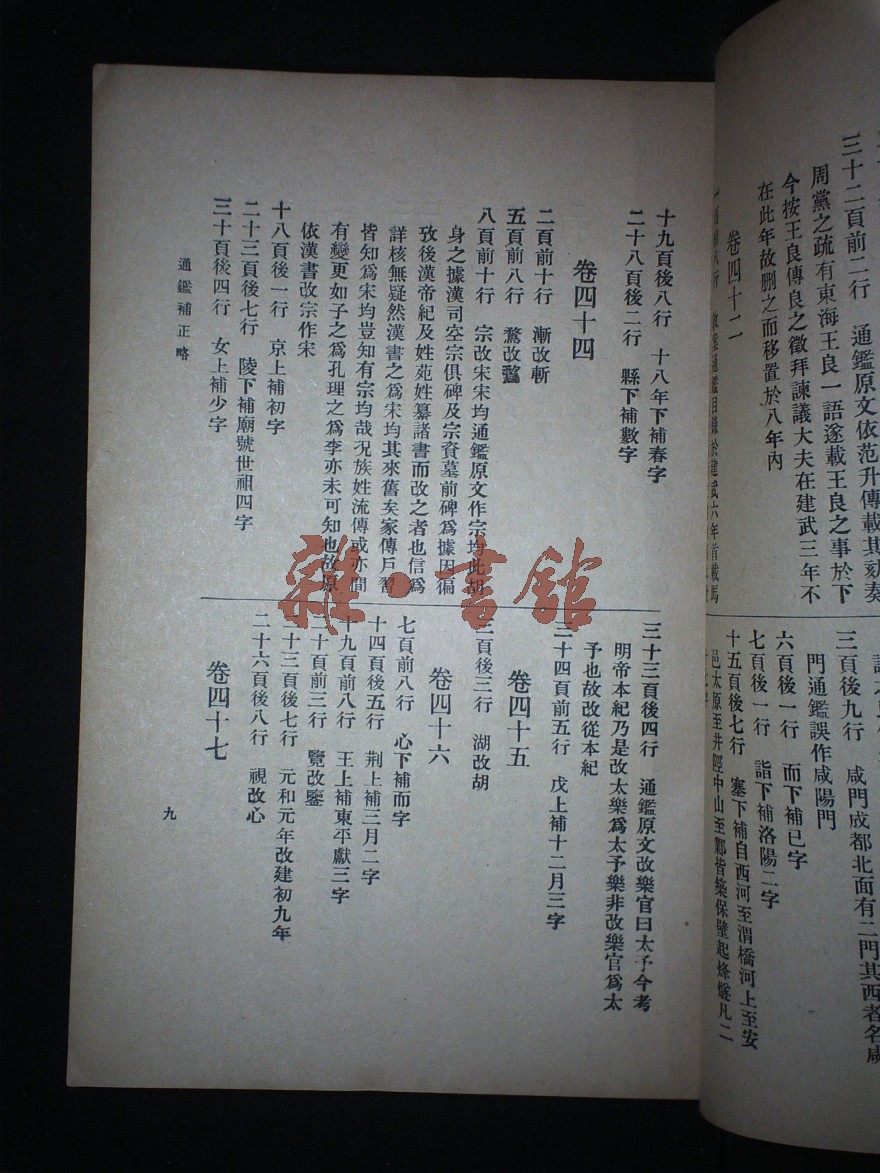 三十二頁前二行　通鑑原文依范升傳載其劾奏
周黨之疏有東海王良一語遂載王良之事於下
今按王良傳良之徵拜諫議大夫在建武三年不
在此年故刪之而移置於八年內
卷四十二
三頁後九行　咸門成都北面有二門其西者名咸
門通鑑誤作咸陽門
六頁後一行　而下補已字
七頁後一行　詣下補洛陽二字
十五頁後七行　塞下補自西河至渭橋河上至安
邑太原至井陘中山至鄴皆築保壁起烽燧凡二
十九頁後八行　十八年下補春字
二十八頁後二行　縣下補數字
卷四十四
二頁前十行　漸改斬
五頁前八行　騖改鶩
八頁前十行　宗改宋宋均通鑑原文作宗均此胡
身之據漢司空宗俱碑及宗資墓前碑爲據因偏
攷後漢帝紀及姓苑姓纂諸書而改之者也信爲
詳核無疑然漢書之爲宋均其來舊矣家傳戶習
皆知爲宋均豈知有宗均哉況族姓流傳或亦間
有變更如子之爲孔理之爲李亦未可知也故原
依漢書改宗作宋
十八頁後一行　京上補初字
二十三頁後七行　陵下補廟號世祖四字
三十頁後四行　女上補少字
三十三頁後四行　通鑑原文改樂官曰太予今考
明帝本紀乃是改太樂爲太予樂非改樂官爲太
予也故改從本紀
三十四頁前五行　戊上補十二月三字
卷四十五
三頁後三行　湖改胡
卷四十六
七頁前八行　心下補而字
十四頁後五行　荆上補三月二字
十九頁前八行　王上補東平獻三字
二十頁前三行　覽改鑒
二十三頁後七行　元和元年改建初九年
二十六頁後八行　視改心
卷四十七
通鑑補正略
九
雜·書館